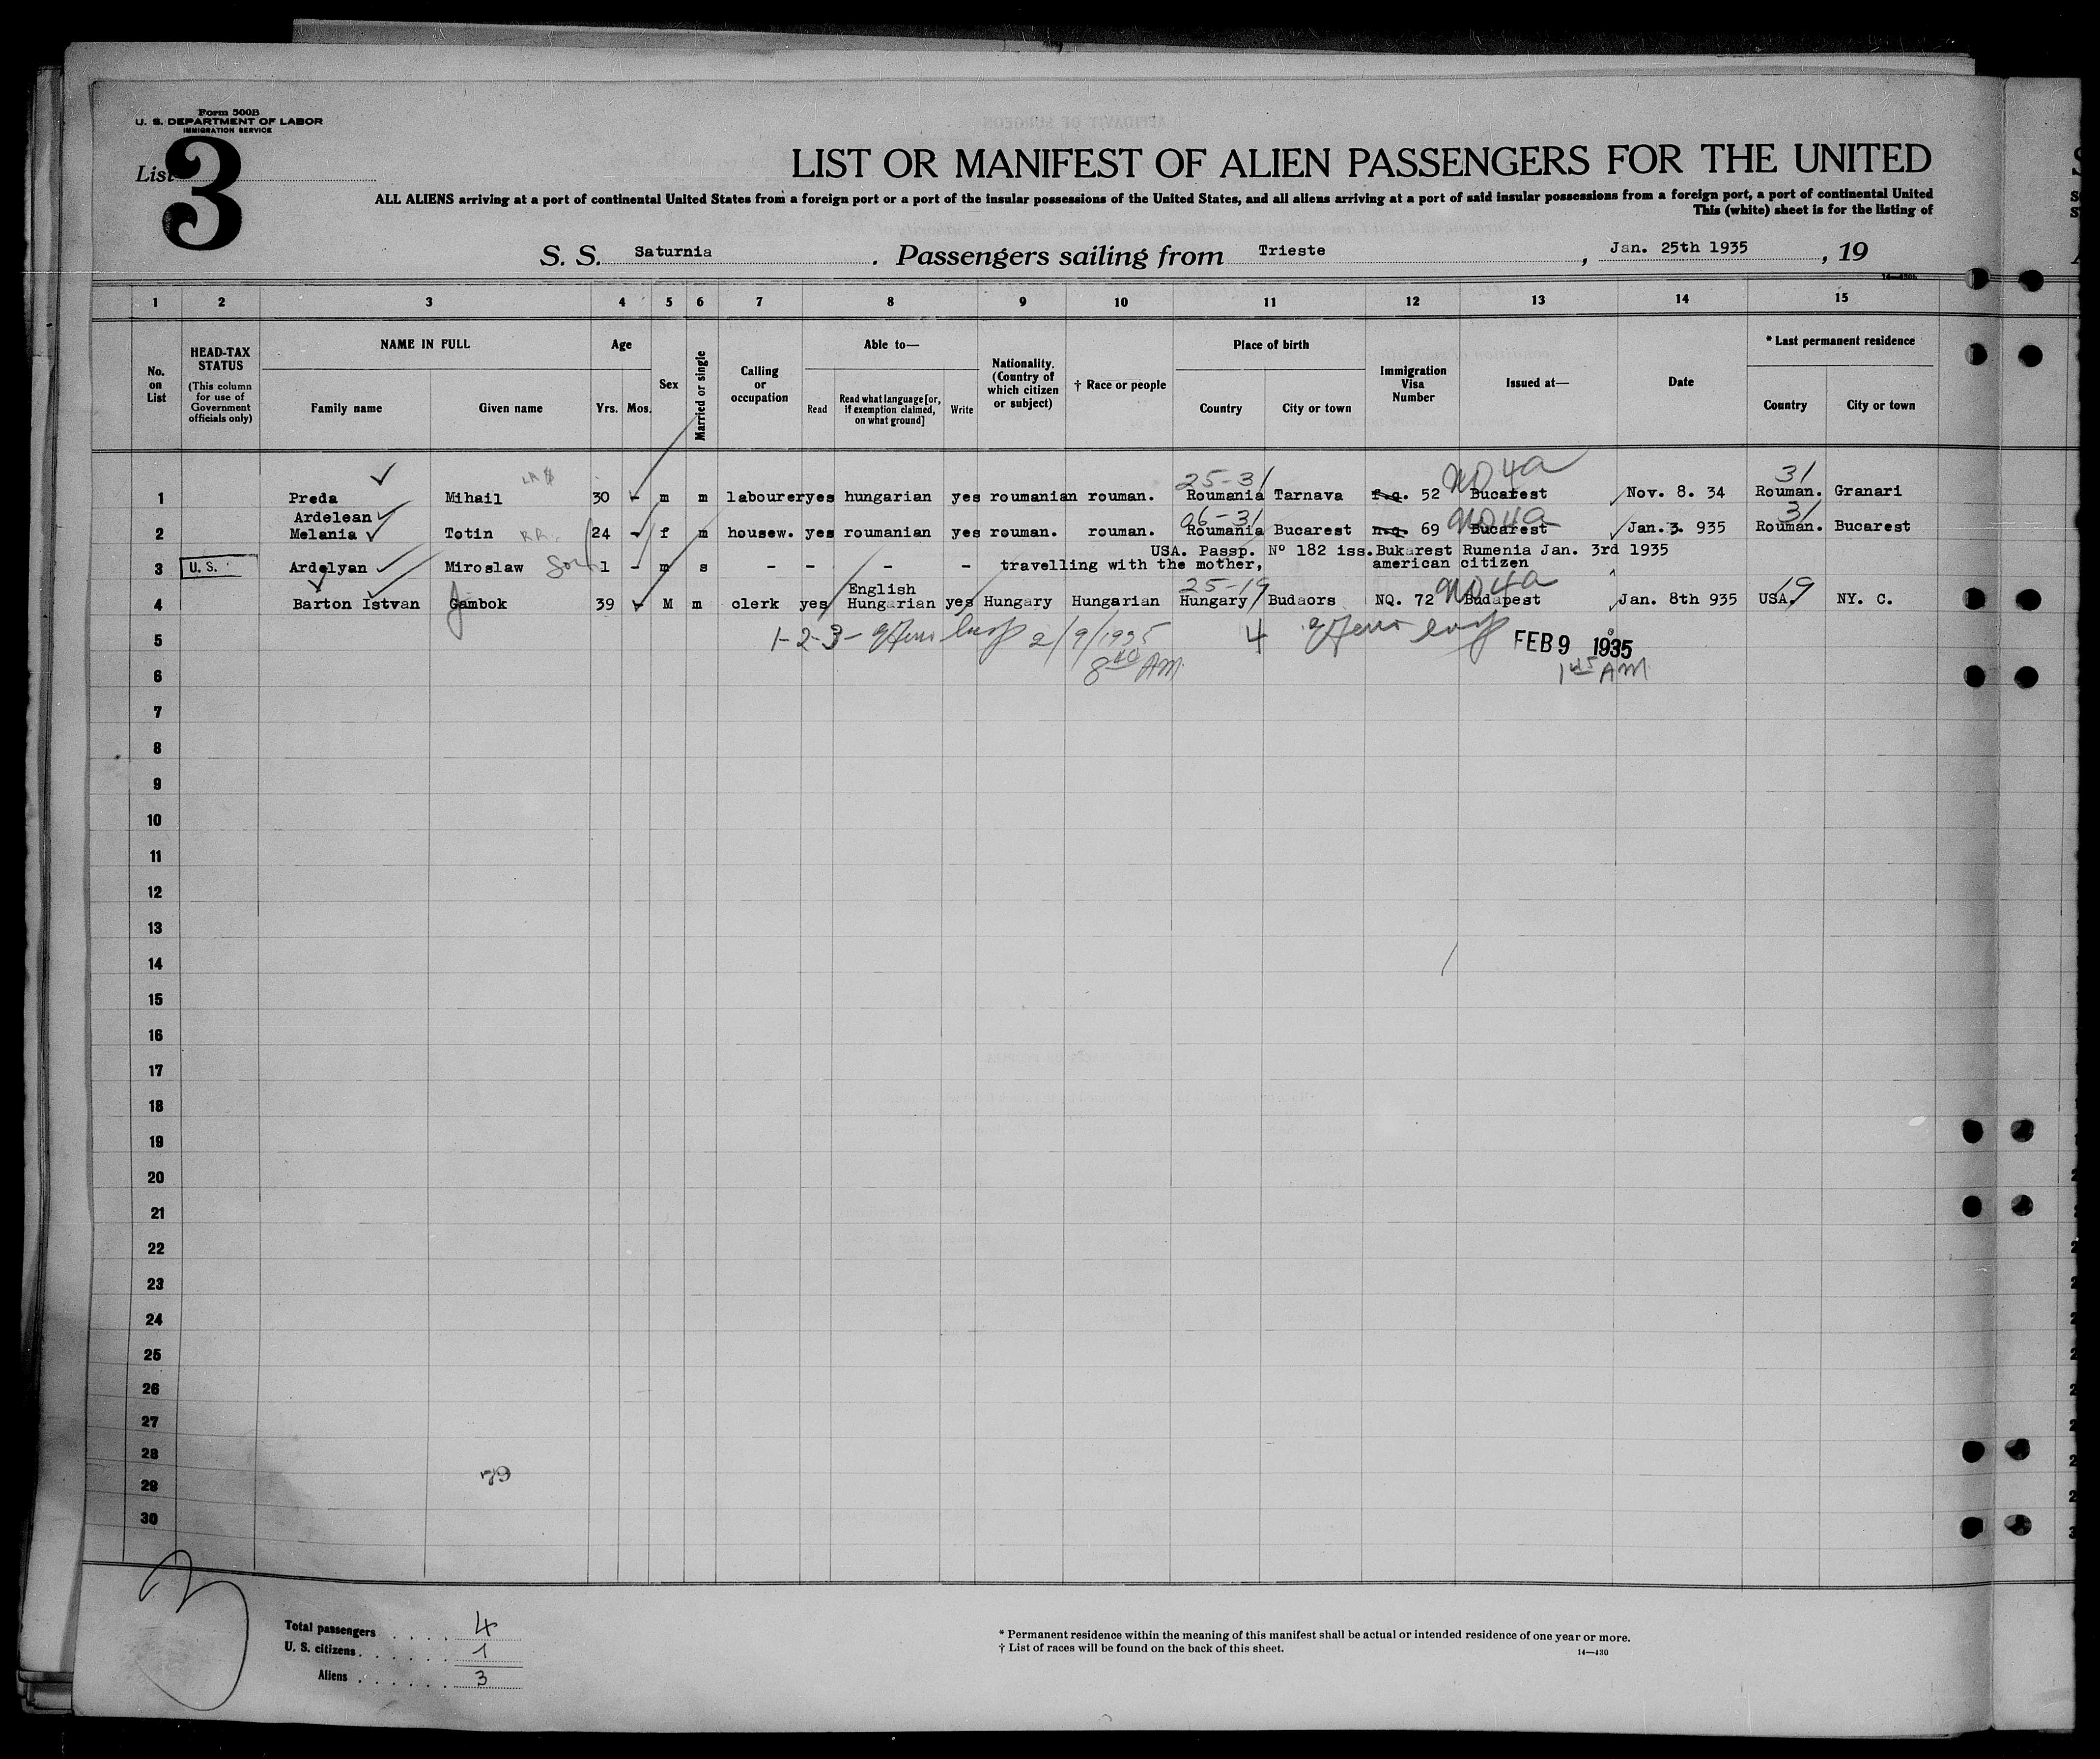 Form 500B
U. S. DEPARTMENT OF LABOR
IMMIGRATION SERVICE
List 3
LIST OR MANIFEST OF ALIEN PASSENGERS FOR THE UNITED
ALL ALIENS arriving at a port of continental United States from a foreign port or a port of the insular possessions of the United States, and all aliens arriving at a port of said insular possessions from a foreign port, a port of continental United
This (white) sheet is for the listing of
S. S. Saturnia . Passengers sailing from Trieste , Jan. 25th 1935 , 19
1 2 3 4 5 6 7 8 9 10 11 12 13 14 15
No. on List
HEAD-TAX STATUS
(This column for use of Government officials only)
NAME IN FULL
Family name Given name
Age
Yrs. Mos.
Sex
Married or single
Calling or occupation
Able to—
Read
Read what language [or, if exemption claimed, on what ground]
Write
Nationality. (Country of which citizen or subject)
† Race or people
Place of birth
Country City or town
Immigration Visa Number
Issued at—
Date
* Last permanent residence
Country City or town
25-31 NO 4a 31
1 Preda Mihail 30 - m m labourer yes hungarian yes roumanian rouman. Roumania Tarnava 52 Bucarest Nov. 8. 34 Rouman. Granari
Ardelean 26-31 NO4a 31
2 Melania Totin 24 - f m housew. yes roumanian yes rouman. rouman. Roumania Bucarest 69 Bucarest Jan. 3. 935 Rouman. Bucarest
USA. Passp. Nº 182 iss. Bukarest Rumenia Jan. 3rd 1935
3 U. S. Ardelyan Miroslaw Son 1 - m s - - - - travelling with the mother, american citizen
English 25-19 NO4a 19
4 Barton Istvan Gambok 39 - M m clerk yes Hungarian yes Hungary Hungarian Hungary Budaors NQ. 72 Budapest Jan. 8th 935 USA. NY. C.
5 1-2-3- 2/9/1935 4 FEB 9 1935
6 8 40 AM 1 45 AM
7
8
9
10
11
12
13
14
15
16
17
18
19
20
21
22
23
24
25
26
27
28
79
29
30
3
Total passengers . . . . 4
U. S. citizens . . . . . . 1
Aliens . . . . . . 3
* Permanent residence within the meaning of this manifest shall be actual or intended residence of one year or more.
† List of races will be found on the back of this sheet.
14—430